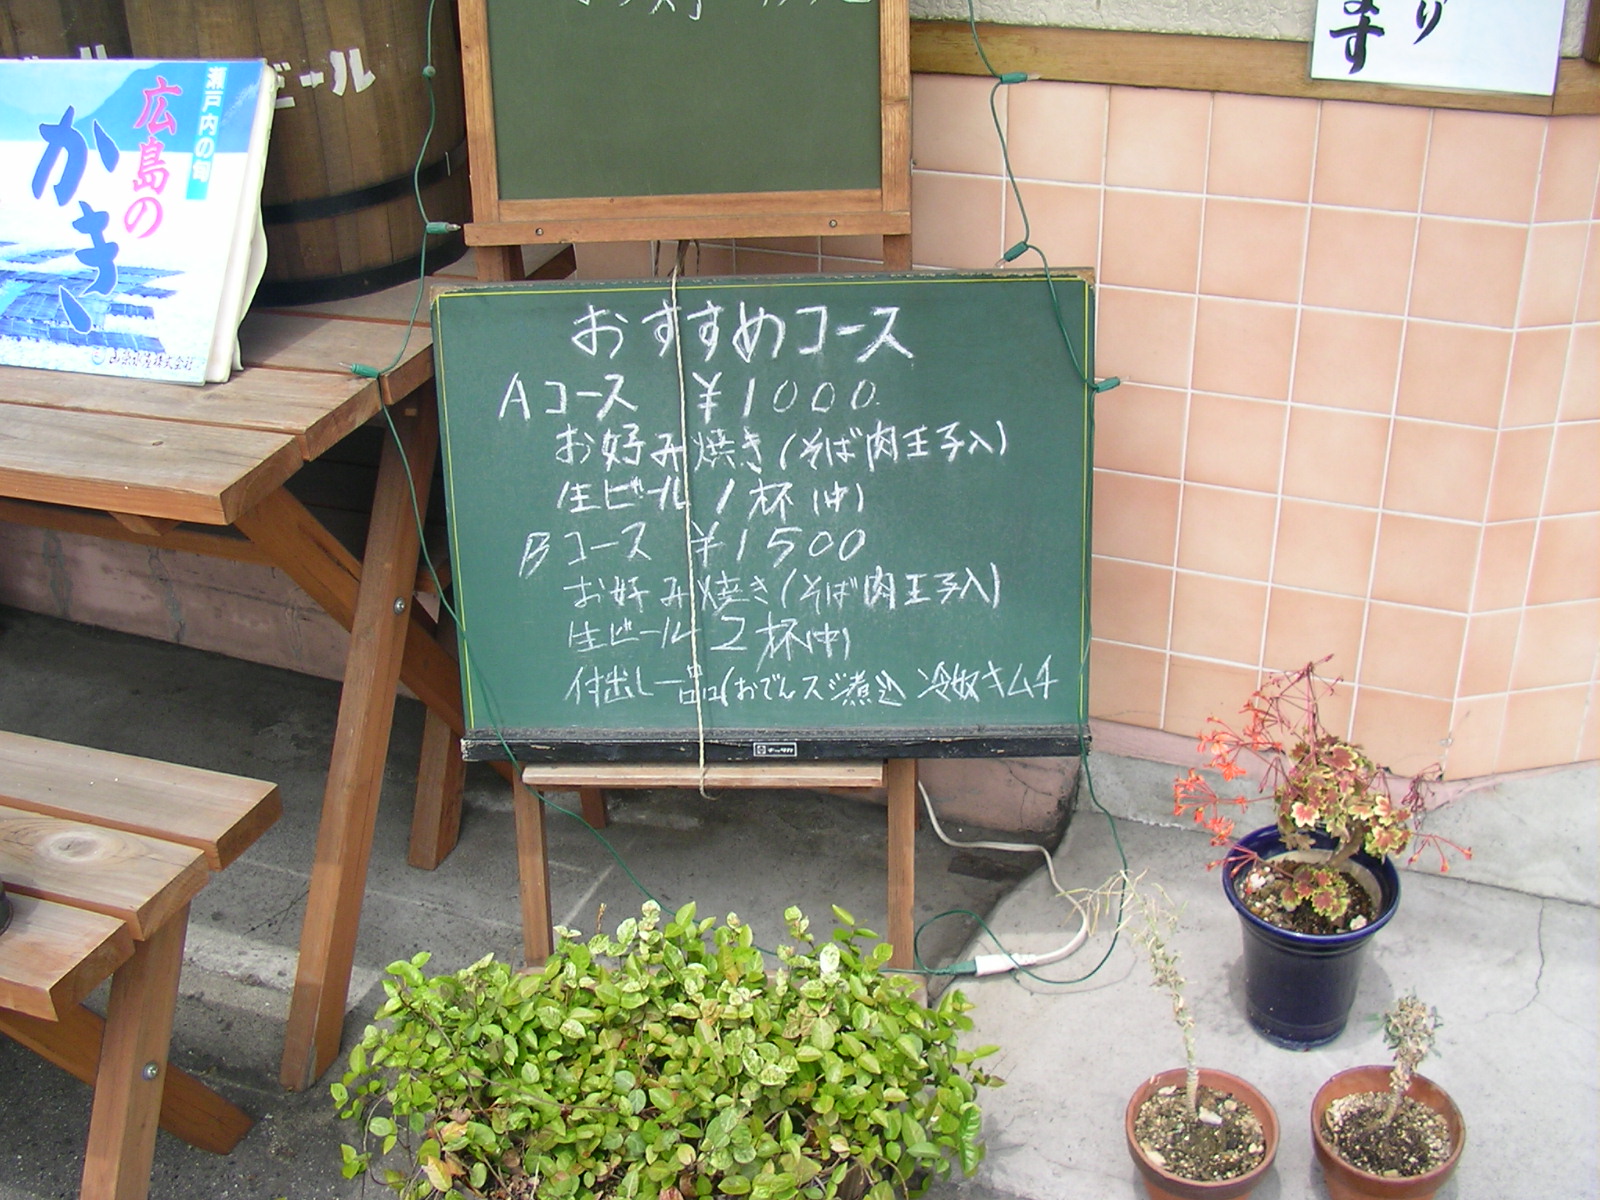 ビール
瀬戸内の旬
広島の
かき
ます
り
おすすめコース
Aコース ¥1000
お好み焼き(そば肉玉子入)
生ビール1杯(中)
Bコース ¥1500
お好み焼き(そば肉玉子入)
生ビール2杯(中)
付出し一品(おでんスジ煮込 冷奴キムチ